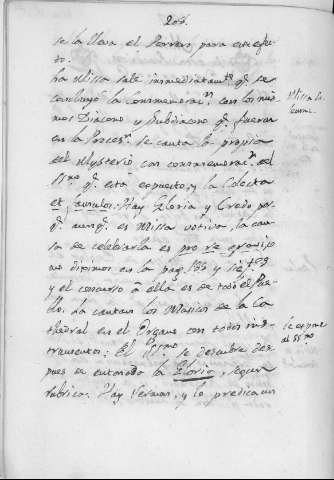 206.
se la lleva el Perrero para este efec
to.
La Missa sale immediatamte. qe. se
concluyó la Conmemoracn. con los mis
mos Diacono y Subdiacono qe. fueron
en la Procesn. Se canta la propia
del Mysterio con conmemoracn. del
SSmo. qe. está expuesto, y la Colecta
et famulos. Hay Gloria y Credo por
qe. aunqe. es Missa votiva, la cau
sa de celebrarla es pro re gravi, co
mo diximos en la pag.
y el concurso á ella es de todo el Pue
blo. La cantan los Musicos de la Ca
thedral en el Organo con todos ins
trumentos: El SSmo. se descubre des
pues de entonado la Gloria, segun
rubrica. Hay Sermon, y lo predica un
Missa So
lemne.
Se expone
el SSmo.